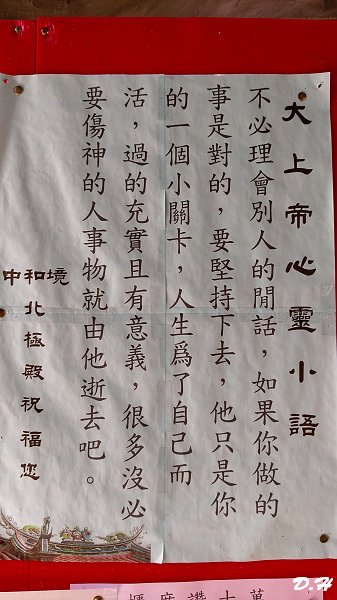 大上帝心靈小語
不必理會別人的閒話，如果你做的
事是對的，要堅持下去，他只是你
的一個小關卡，人生爲了自己而
活，過的充實且有意義，很多沒必
要傷神的人事物就由他逝去吧。
中和境
北極殿祝福您
D.H